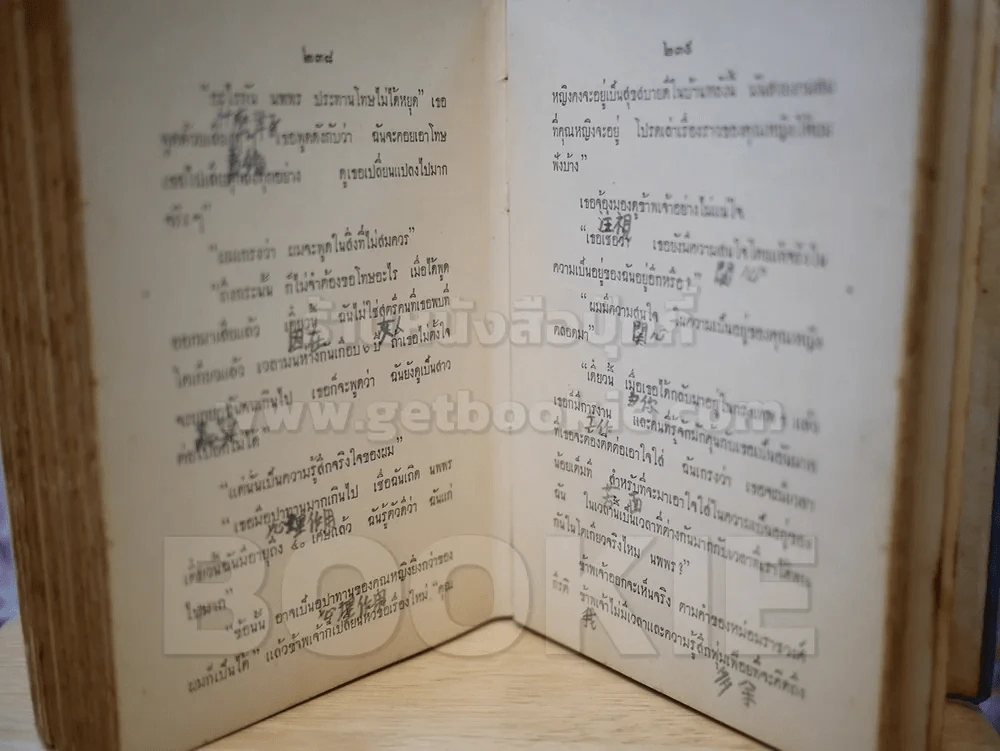 ๒๓๘
นพพร ประทานโทษไม่ได้หยุด" เธอ
เธอพูดดังกับว่า ฉันจะคอยเอาโทษ
ดูเธอเปลี่ยนแปลงไปมาก
จริงๆ"
ผมจะพูดในสิ่งที่ไม่สมควร"
"ถึงกระนั้น ก็ไม่จำต้องขอโทษอะไร เมื่อได้พูด
ออกมาเสียแล้ว เดี๋ยวนี้ ฉันไม่ใช่สตรีคนที่เธอพบที่
因在 夫人
โตเกียวแล้ว เวลามันห่างกันเกือบ ๖ ปี ถ้าเธอไม่ตั้งใจ
เธอก็จะพูดว่า ฉันยังดูเป็นสาว
ต่อไปอีกไม่ได้
"แต่นั่นเป็นความรู้สึกจริงใจของผม"
"เธอมีอุปาทานมากเกินไป เชื่อฉันเถิด นพพร
心理作用
เดี๋ยวนี้ฉันมีอายุถึง ๔๐ เศษแล้ว ฉันรู้ตัวดีว่า ฉันแก่
ไปมาก"
"ข้อนั้น อาจเป็นอุปาทานของคุณหญิงยิ่งกว่าของ
心理作用
ผมก็เป็นได้" แล้วข้าพเจ้าก็เปลี่ยนหัวข้อเรื่องใหม่ "คุณ
๒๓๙
หญิงคงจะอยู่เป็นสุขสบายดีในบ้านหลังนี้
ที่คุณหญิงจะอยู่ โปรดเล่าเรื่องราวของคุณหญิงให้ผม
ฟังบ้าง"
เธอจ้องมองดูข้าพเจ้าอย่างไม่แน่ใจ
注相
เธอยังมีความสนใจ
關心
ความเป็นอยู่ของฉันอยู่อีกหรือ?"
"ผมมีความสนใจ ในความเป็นอยู่ของคุณหญิง
關心
ตลอดมา"
"เดี๋ยวนี้ เมื่อเธอได้กลับมาอยู่ในกรุงเทพ ฯ แล้ว
เธอก็มีการงาน และคนที่รู้จักมักคุ้นกับเธอเป็นอันมาก
工作
ที่เธอจะต้องคิดต่อเอาใจใส่ ฉันเกรงว่า เธอจะมีเวลา
น้อยเต็มที สำหรับที่จะมาเอาใจใส่ในความเป็นอยู่ของ
ฉัน ในเวลานี้เป็นเวลาที่ต่างกันมากกับเวลาที่เราได้พบ
กันในโตเกียวจริงไหม นพพร?"
ข้าพเจ้าออกจะเห็นจริง ตามคำของหม่อมราชวงศ์
กีรติ ข้าพเจ้าไม่มีเวลาและความรู้สึกฟุ่มเฟือยที่จะคิดถึง
我 多余
ร้านหนังสือปุ๊กกี้
www.getbookie.com
BOOKIE